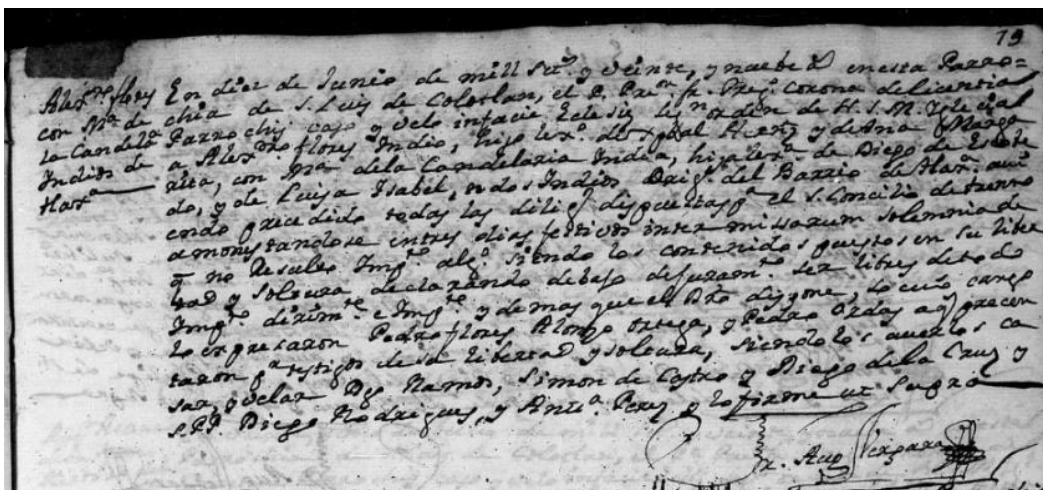 79
Alex.ro flores
con M.a de
la Candel.a
Indios de
tlax.a
En dies de Junio de mill Set.s y veinte, y nuebe a.s en esta Parro=
chia de S. Luis de Colotlan, el P. Pre.n fr. Greg.o Corona de licentia
Parrochis caso y velo in facie Eclesiæ
a Alex.ro flores Indio, hijo lex.o de Xptobal y de Ana Marga
rita, con M.a de la Candelaria India, hija lex.a de Diego de
do, y de Luisa Isabel, todos Indios Orig.s del Barrio de tlax.a avi
endo precedido todas las dilig.s dispuestas p.r el S. Concilio de trento
amonestandose en tres dias festivos inter missarum solemnia de
q no Resulto Imp.to alg.o siendo los contenidos puestos en su liber
tad y soltura declarando debajo de juram.to ser libres de todo
Imp.to dirim.te e Imp.te y demas que el dro dispone, lo cuio cargo
lo expresaron Pedro flores Alonso Ortega, y Pedro Ordas q presen
taron p.r testigos de su libertad y soltura, siendolos a verlos ca
sar, y velar Dgo Ramos, Simon de Castro y Diego de la Cruz y
S.PP. Diego Rodrigues, y Ant.a Perez y lo firme ut Supra
fr. Aug Vergara